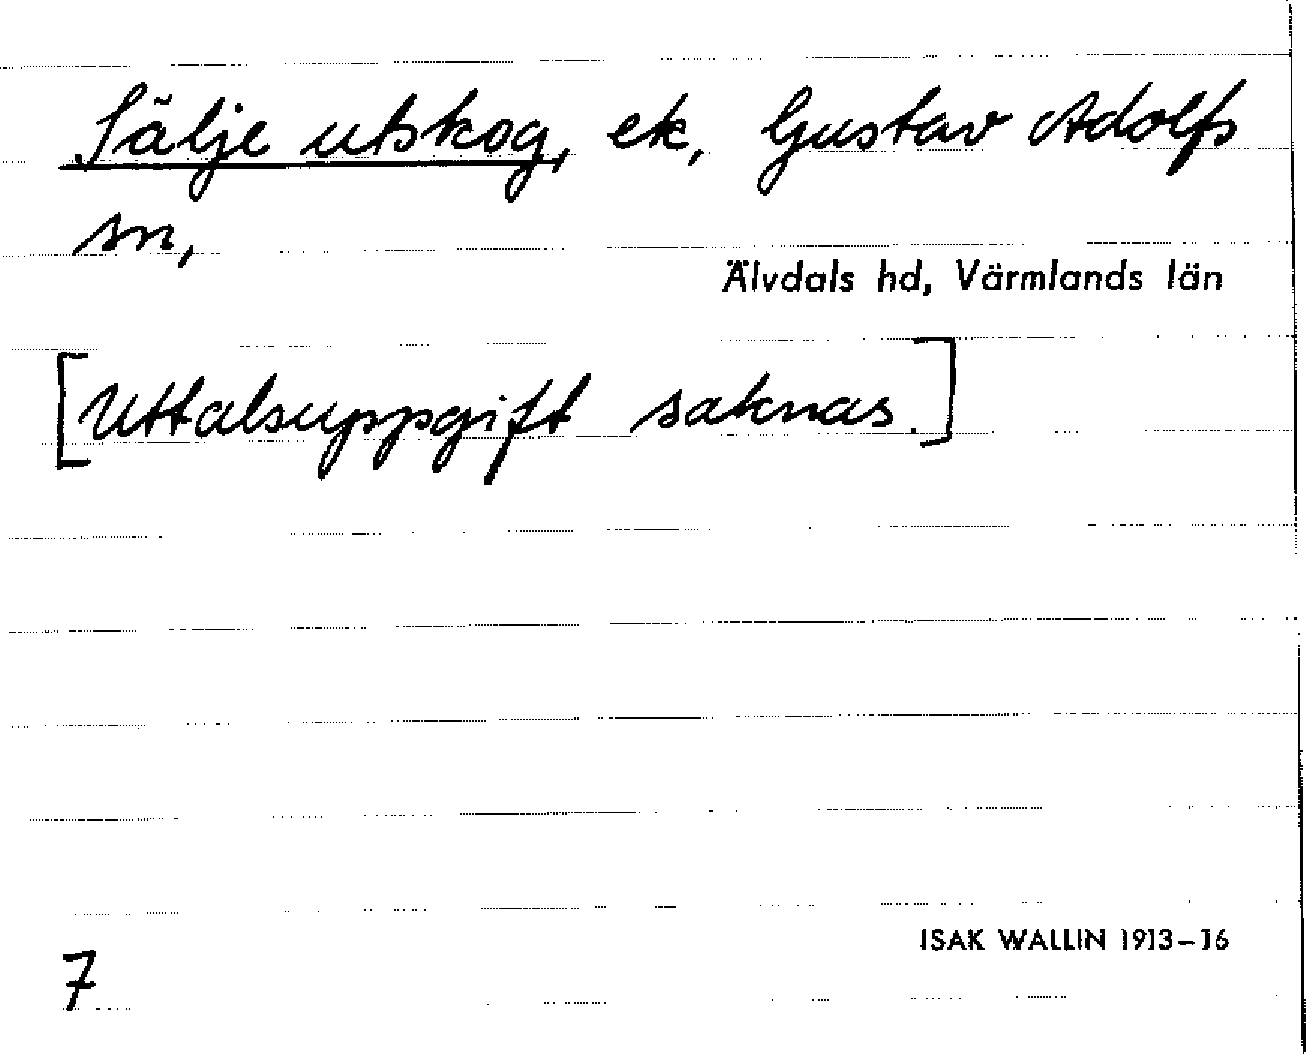 Sälje utskog, ek, Gustav Adolfs
sn,
Älvdals hd, Värmlands län
[Uttalsuppgift saknas.]
ISAK WALLIN 1913–16
7